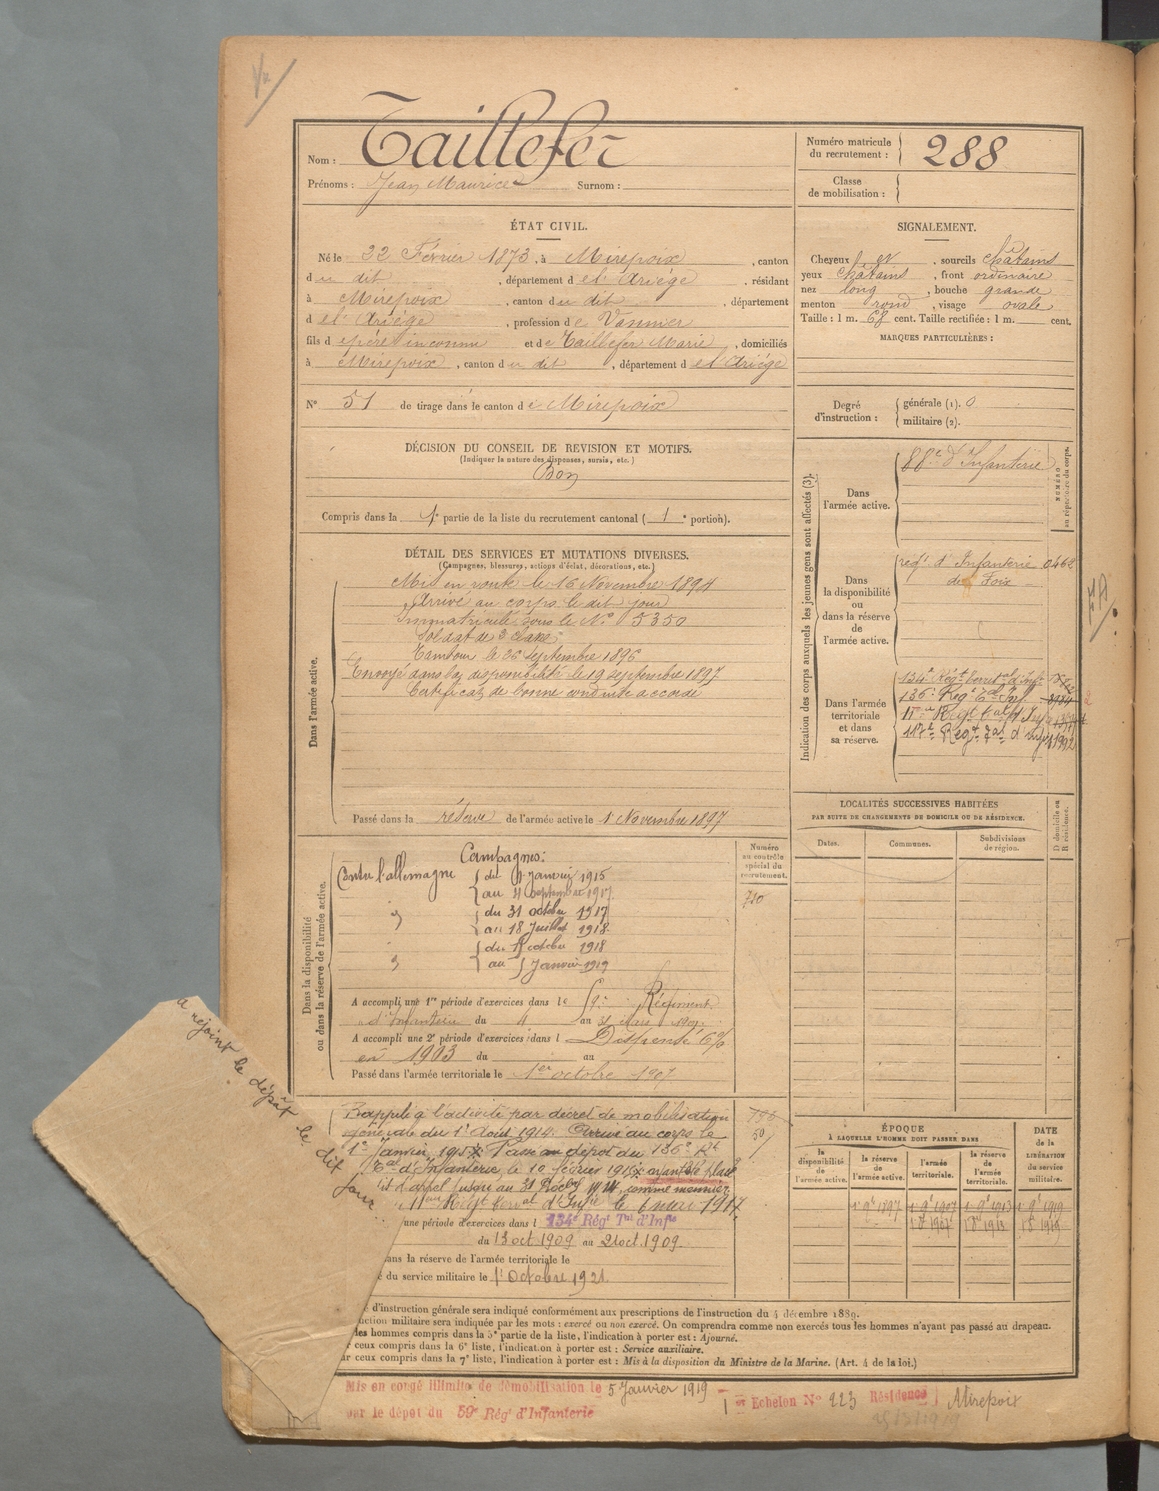 Nom : Taillefer
Prénoms : Jean Maurice Surnom :
Numéro matricule du recrutement : 288
Classe de mobilisation :
ÉTAT CIVIL.
Né le 22 Février 1873, à Mirepoix, canton
du dit, département de l'Ariège, résidant
à Mirepoix, canton du dit, département
de l'Ariège, profession de Vannier
fils de père inconnu et de Taillefer Marie, domiciliés
à Mirepoix, canton du dit, département de l'Ariège
N° 51 de tirage dans le canton de Mirepoix
SIGNALEMENT.
Cheveux et, sourcils châtains
yeux châtains, front ordinaire
nez long, bouche grande
menton rond, visage ovale
Taille : 1 m. 68 cent. Taille rectifiée : 1 m. cent.
MARQUES PARTICULIÈRES :
Degré d'instruction : générale (1). 0
militaire (2).
DÉCISION DU CONSEIL DE REVISION ET MOTIFS.
(Indiquer la nature des dispenses, sursis, etc.)
Bon
Compris dans la 1e partie de la liste du recrutement cantonal ( 1e portion).
DÉTAIL DES SERVICES ET MUTATIONS DIVERSES.
(Campagnes, blessures, actions d'éclat, décorations, etc.)
Dans l'armée active.
Mis en route le 16 Novembre 1894
Arrivé au corps le dit jour
Immatriculé sous le N° 5350
Soldat de 2e classe
Tambour le 26 septembre 1896
Envoyé dans la disponibilité le 19 septembre 1897
Certificat de bonne conduite accordé
Passé dans la réserve de l'armée active le 1 Novembre 1897
Indication des corps auxquels les jeunes gens sont affectés (3).
NUMÉRO au répertoire du corps.
Dans l'armée active.
88e d'Infanterie
Dans la disponibilité ou dans la réserve de l'armée active.
regt d'Infanterie 0462
de Foix
Dans l'armée territoriale et dans sa réserve.
134e Régt territal d'inf
136e Regt Tal Inf
Regt
Regt Tal d'Inf
LOCALITÉS SUCCESSIVES HABITÉES
PAR SUITE DE CHANGEMENTS DE DOMICILE OU DE RÉSIDENCE.
Dates. Communes. Subdivisions de région.
D domicile ou R résidence.
Ou dans la disponibilité
ou dans la réserve de l'armée active.
Numéro au contrôle spécial du recrutement.
720
Campagnes:
Contre l'allemagne du Janvier 1915
au 4 septembre 1917
du 31 octobre 1917
au 18 Juillet 1918
du octobre 1918
au 5 Janvier 1919
A accompli une 1re période d'exercices dans le 59e Régiment
d'Infanterie du 4 au
A accompli une 2e période d'exercices dans l Dispensé 6%
en 1903 du au
Passé dans l'armée territoriale le 1er octobre 1907
Rappelé à l'activité par décret de mobilisation
générale du 1er Août 1914. Arrivé au corps le
1er Janvier 1915. Passé au dépôt du 136e Rt
Tal d'Infanterie le 10 février 1915 ayant été placé
d'appel jusqu'au 31 comme meunier
Regt territ d'Infie le 6 mars 1917.
une période d'exercices dans l 134e Régt Tal d'Infie
du 13 oct. 1909 au 21 oct. 1909
dans la réserve de l'armée territoriale le
du service militaire le 1er Octobre 1921
a rejoint le dépôt le dit jour
ÉPOQUE
À LAQUELLE L'HOMME DOIT PASSER DANS
DATE de la LIBÉRATION du service militaire.
la disponibilité de l'armée active. la réserve de l'armée active. l'armée territoriale. la réserve de l'armée territoriale.
d'instruction générale sera indiqué conformément aux prescriptions de l'instruction du 4 décembre 1889.
uction militaire sera indiquée par les mots : exercé ou non exercé. On comprendra comme non exercés tous les hommes n'ayant pas passé au drapeau.
les hommes compris dans la 5e partie de la liste, l'indication à porter est : Ajourné.
ceux compris dans la 6e liste, l'indication à porter est : Service auxiliaire.
ur ceux compris dans la 7e liste, l'indication à porter est : Mis à la disposition du Ministre de la Marine. (Art. 4 de la loi.)
Mis en congé illimité de démobilisation le 5 Janvier 1919
par le dépôt du 59e Régt d'Infanterie
1er Echelon N° 223 Résidence Mirepoix